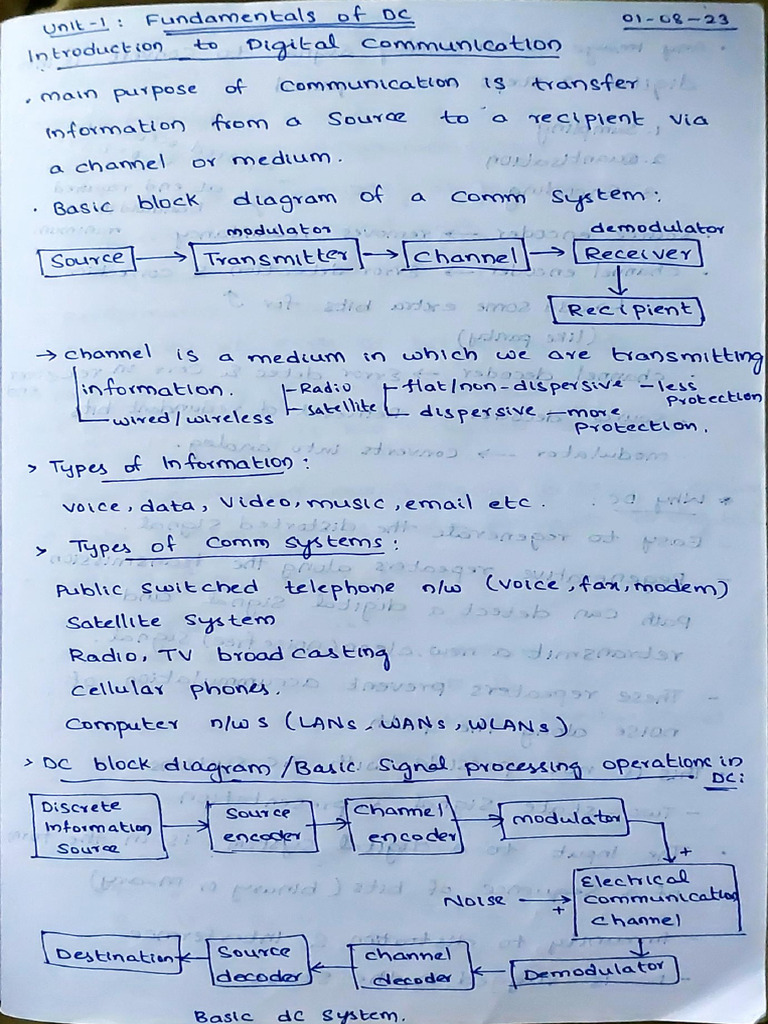 Unit-1: Fundamentals of DC 01-08-23
Introduction to Digital Communication
. main purpose of communication is transfer
information from a source to a recipient via
a channel or medium.
. Basic block diagram of a comm system:
modulator demodulator
Source → Transmitter → Channel → Receiver
Recipient
→ channel is a medium in which we are transmitting
information. Radio flat/non-dispersive - less protection
wired/wireless satellite dispersive - more protection.
> Types of Information:
voice, data, video, music, email etc.
> Types of comm systems:
Public switched telephone n/w (voice, fax, modem)
Satellite system
Radio, TV broadcasting
cellular phones.
Computer n/ws (LANs, WANs, WLANs)
> DC block diagram/Basic signal processing operations in DC:
Discrete Information Source → Source encoder → Channel encoder → modulator
+
Noise → + Electrical communication channel
Destination ← Source decoder ← channel decoder ← Demodulator
Basic dc system.